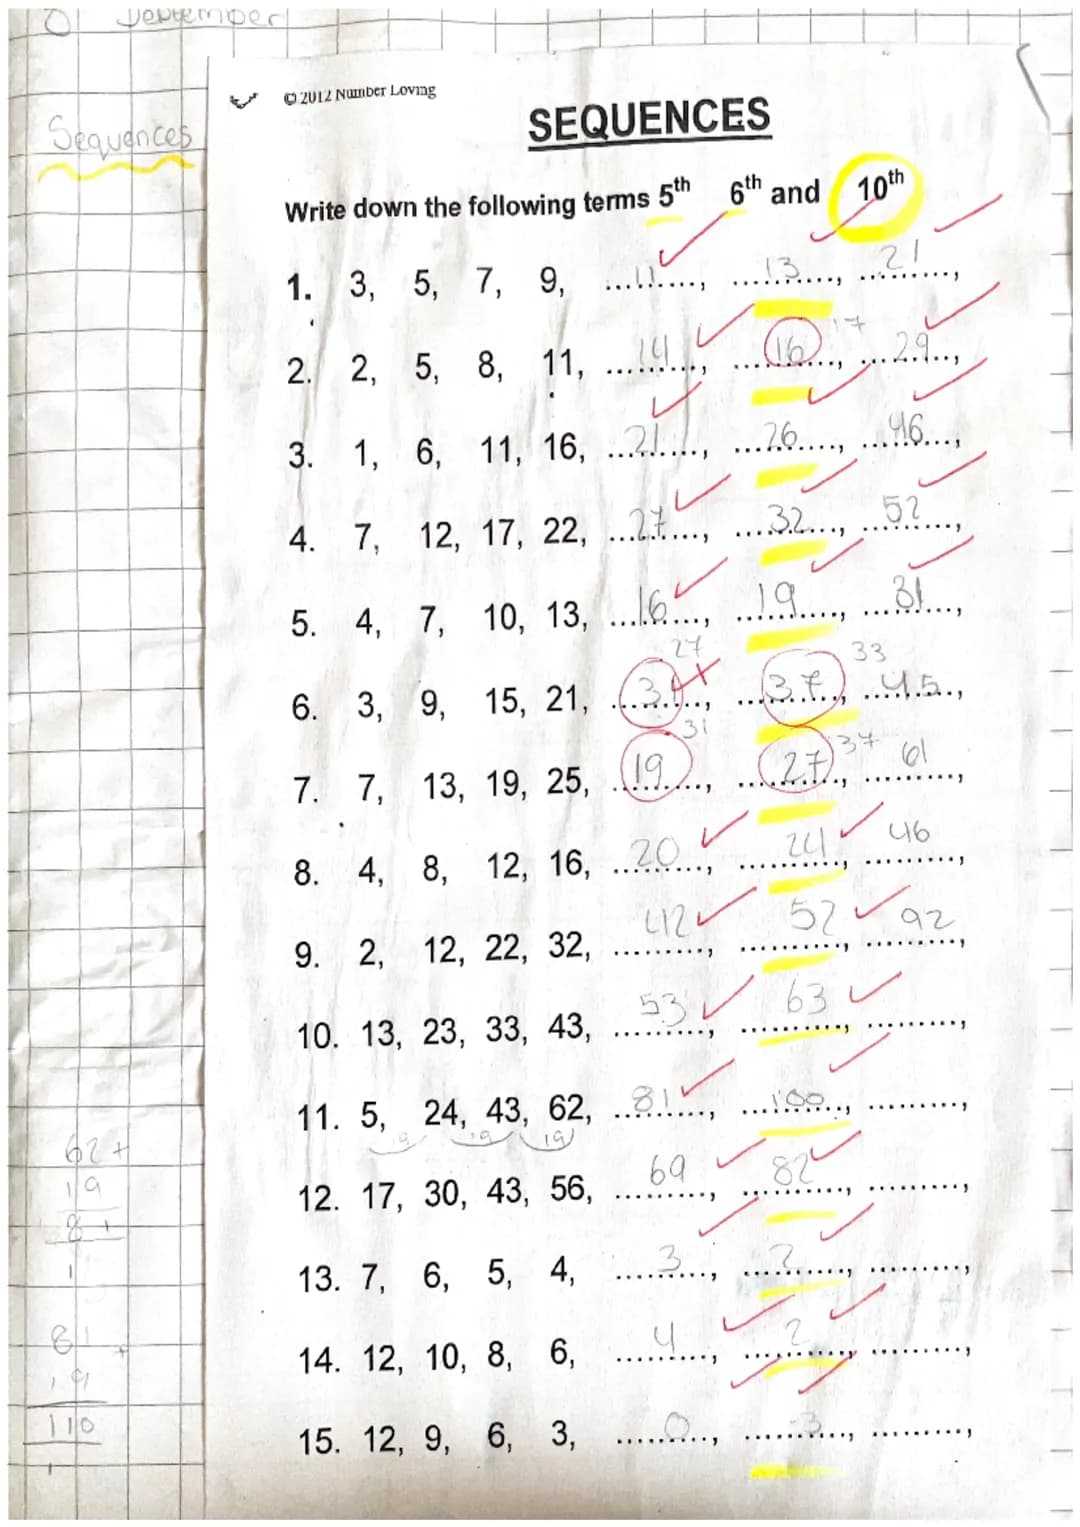 01 September
© 2012 Number Loving
Sequences
SEQUENCES
Write down the following terms 5th 6th and 10th
1. 3, 5, 7, 9, ...11..., ...13..., ...21...,
17
2. 2, 5, 8, 11, ...14..., ...16..., ...29...,
3. 1, 6, 11, 16, ...21..., ...26..., ...46...,
4. 7, 12, 17, 22, ...27..., ...32..., ...52...,
5. 4, 7, 10, 13, ...16..., ...19..., ...31...,
27 33
6. 3, 9, 15, 21, ...31..., ...37..., ...45...,
31 37
7. 7, 13, 19, 25, ...19..., ...27..., 61 ...,
8. 4, 8, 12, 16, ...20..., ...24..., 46 ...,
9. 2, 12, 22, 32, 42 ..., 52 ..., 92 ...,
10. 13, 23, 33, 43, 53 ..., 63 ..., .........,
11. 5, 24, 43, 62, ...81..., ...100..., .........,
19 19 19
12. 17, 30, 43, 56, 69 ..., 82 ..., .........,
13. 7, 6, 5, 4, ...3..., ...2..., .........,
14. 12, 10, 8, 6, 4 ..., 2 ..., .........,
15. 12, 9, 6, 3, ...0..., ...-3..., .........,
62 +
19
81
1
81 +
19
110
1